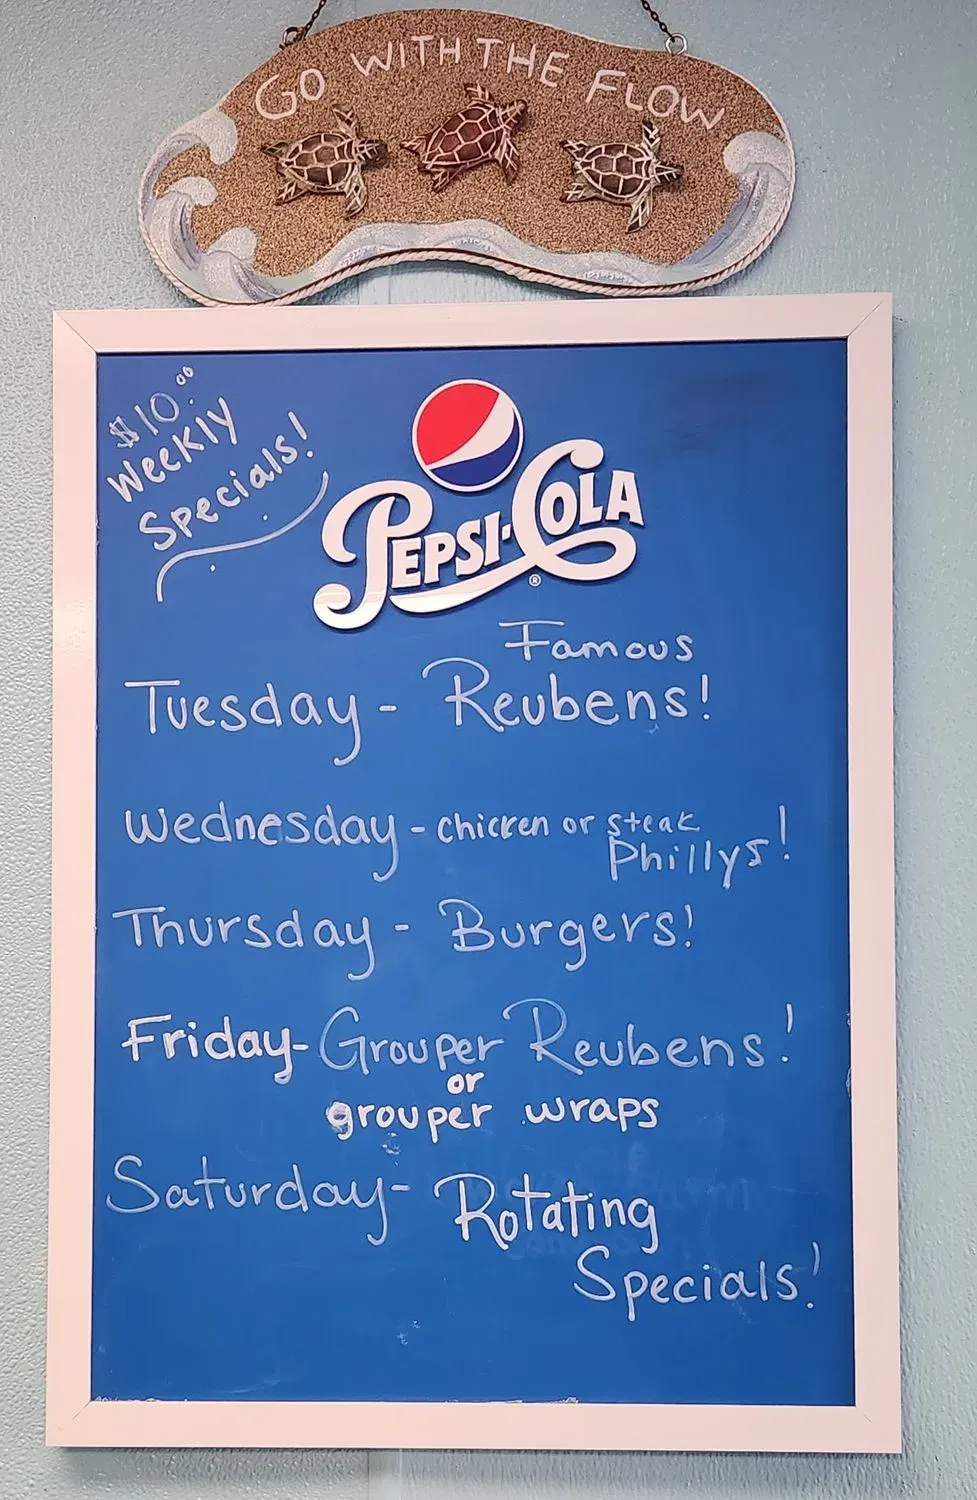 GO WITH THE FLOW
$10.00
Weekly
Specials!
PEPSI-COLA
®
Famous
Tuesday - Reubens!
Wednesday - chicken or steak
Phillys!
Thursday - Burgers!
Friday - Grouper Reubens!
or
grouper wraps
Saturday - Rotating
Specials!